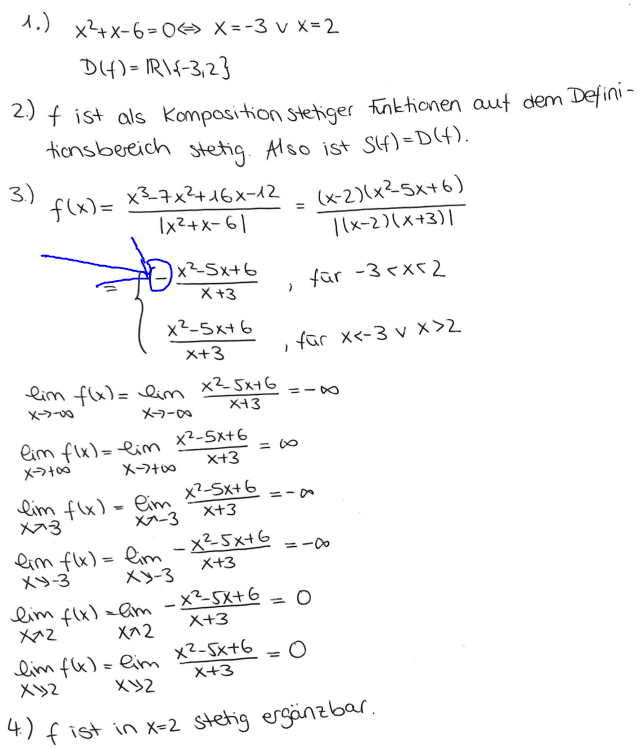 1.) x²+x-6=0 ⇔ x=-3 ∨ x=2
D(f)=ℝ\{-3,2}
2.) f ist als Komposition stetiger Funktionen auf dem Defini-
tionsbereich stetig. Also ist S(f)=D(f).
3.) f(x) = (x³-7x²+16x-12)/|x²+x-6| = ((x-2)(x²-5x+6))/|(x-2)(x+3)|
= { - (x²-5x+6)/(x+3) , für -3<x<2
(x²-5x+6)/(x+3) , für x<-3 ∨ x>2
lim x→-∞ f(x) = lim x→-∞ (x²-5x+6)/(x+3) = -∞
lim x→+∞ f(x) = lim x→+∞ (x²-5x+6)/(x+3) = ∞
lim x↗-3 f(x) = lim x↗-3 (x²-5x+6)/(x+3) = -∞
lim x↘-3 f(x) = lim x↘-3 - (x²-5x+6)/(x+3) = -∞
lim x↗2 f(x) = lim x↗2 - (x²-5x+6)/(x+3) = 0
lim x↘2 f(x) = lim x↘2 (x²-5x+6)/(x+3) = 0
4.) f ist in x=2 stetig ergänzbar.